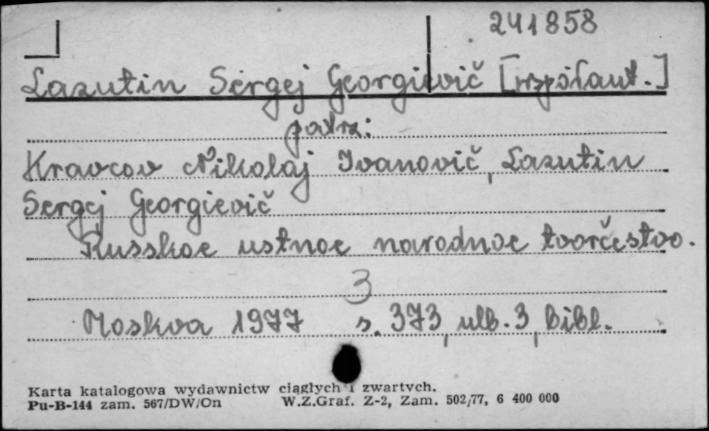 241858
Lazutin Sergej Georgievič [współaut.]
patrz:
Kravcov Nikolaj Ivanovič, Lazutin
Sergej Georgievič
Russkoe ustnoe narodnoe tvorčestvo.
3
Moskva 1977 s. 373, ulb. 3, bibl.
Karta katalogowa wydawnictw ciągłych i zwartych.
Pu-B-144 zam. 567/DW/On W.Z.Graf. Z-2, Zam. 502/77, 6 400 000